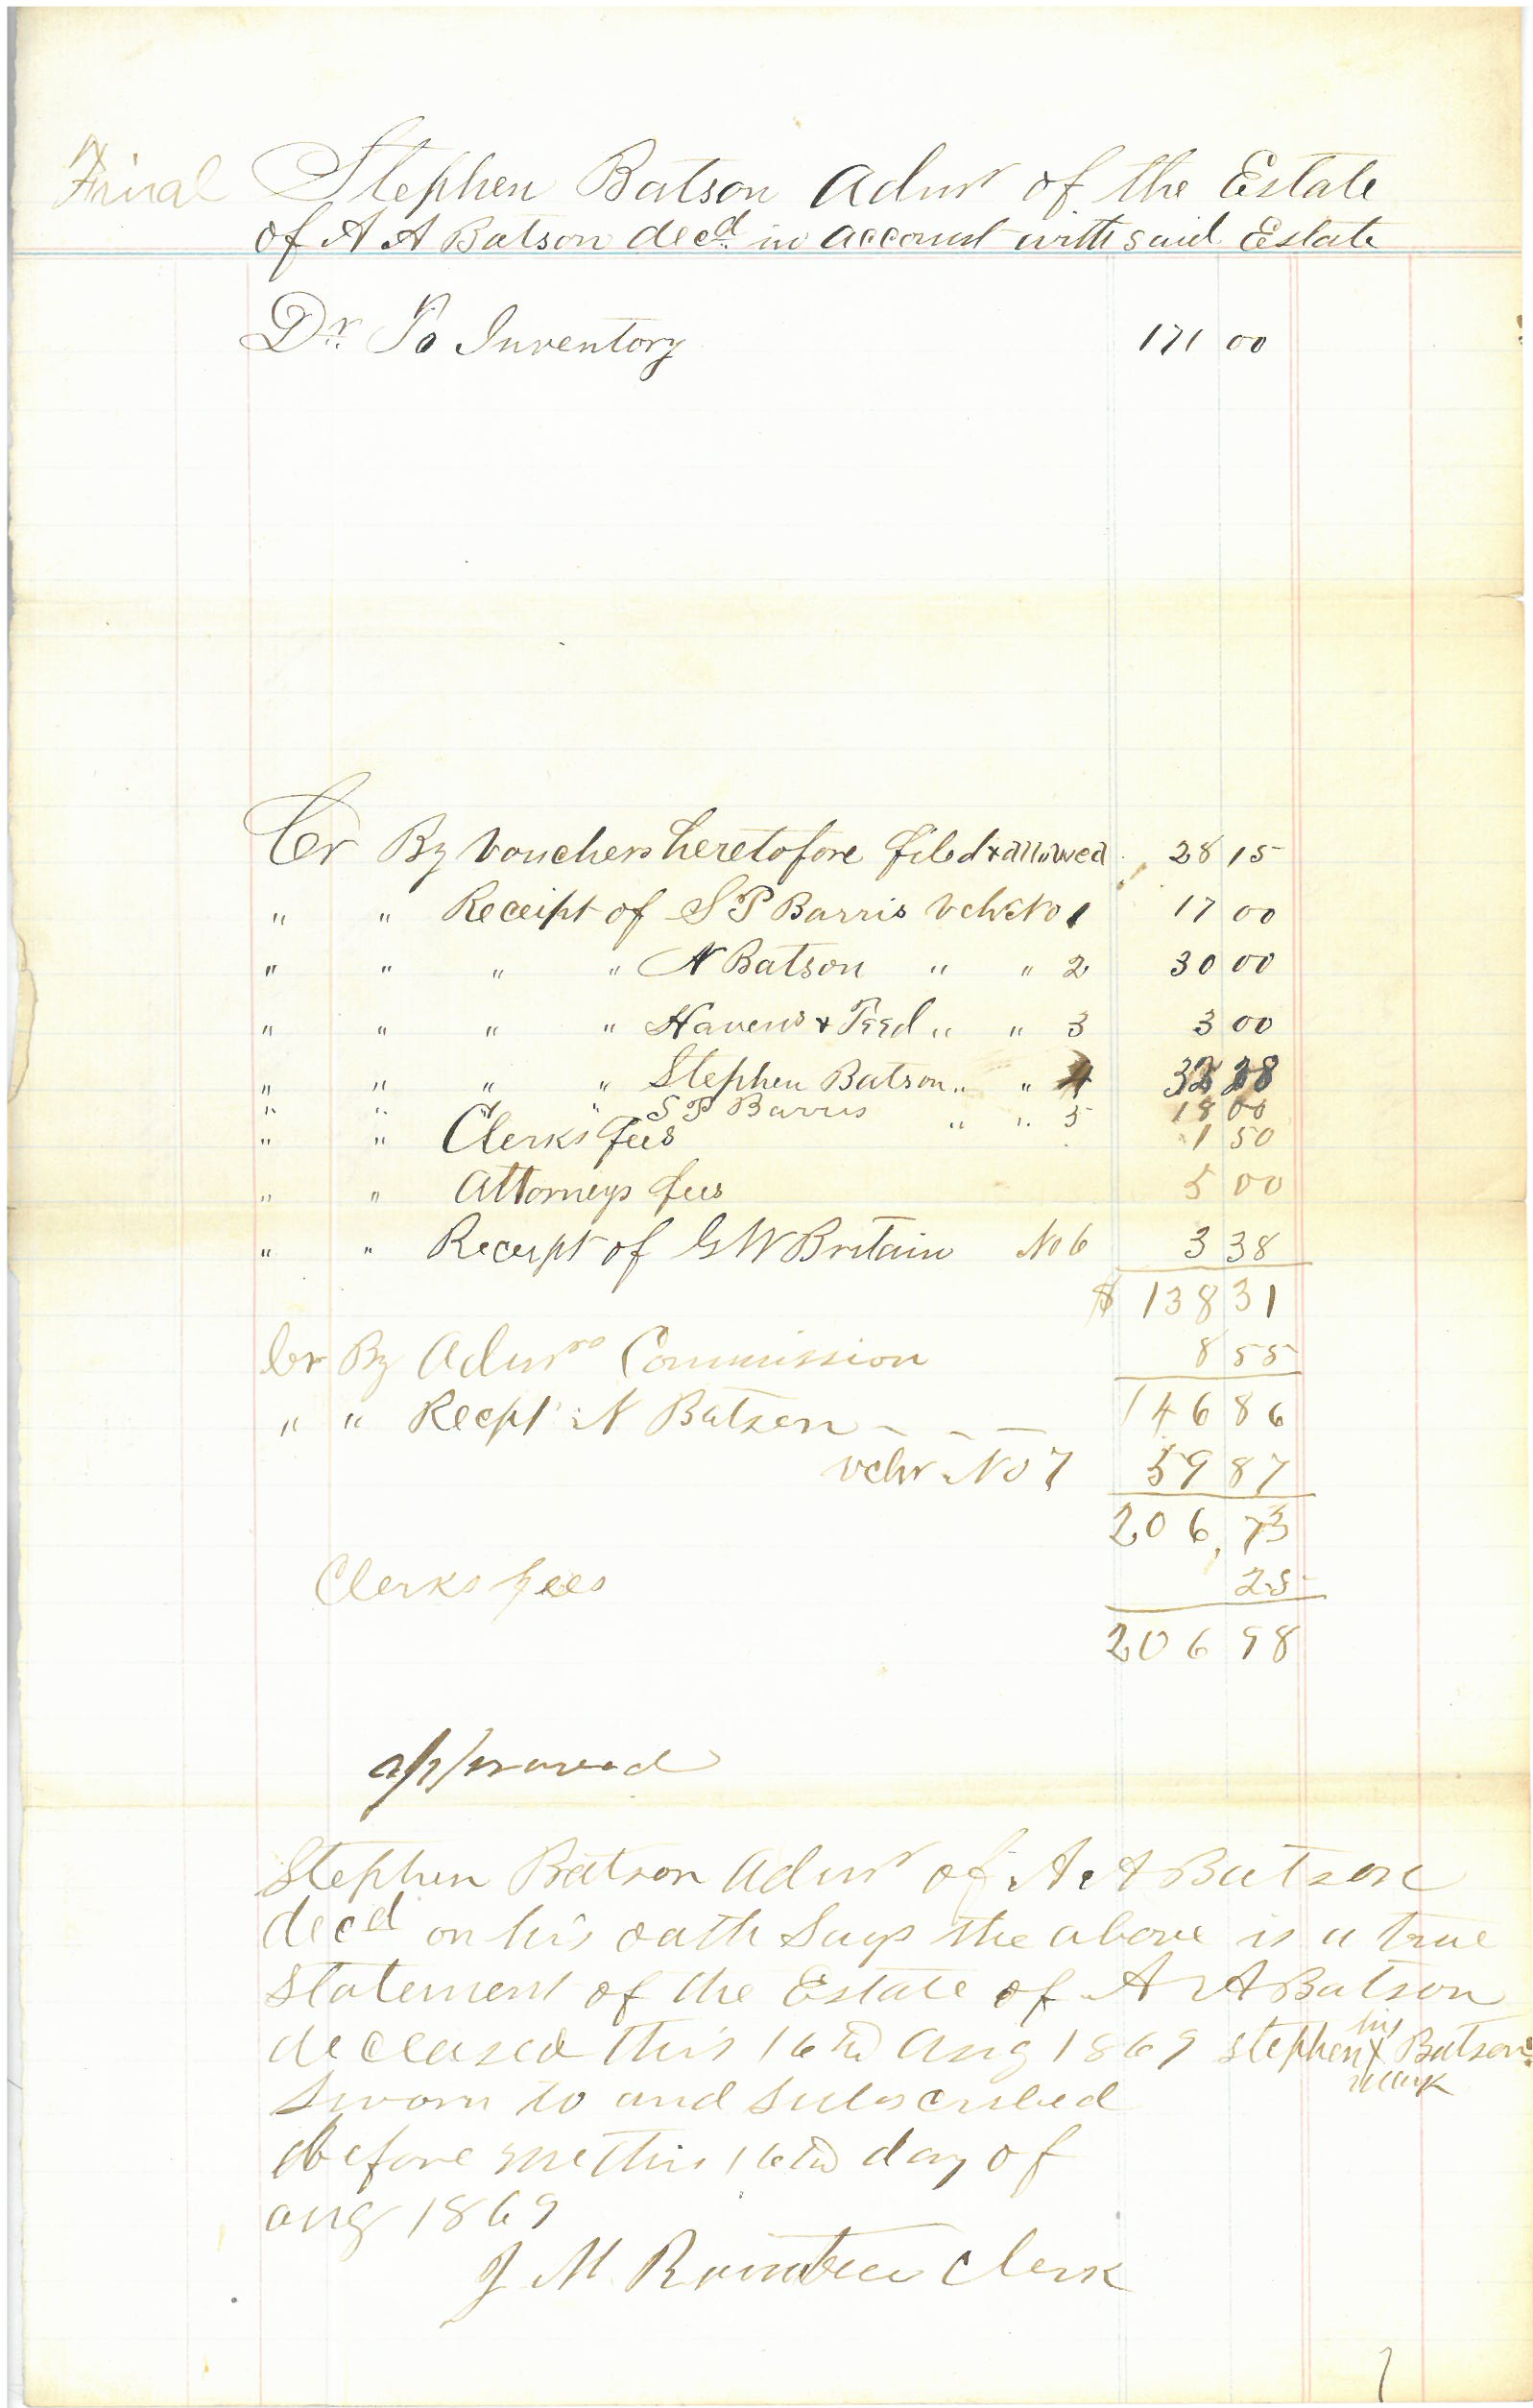 Final Stephen Batson Admr of the Estate
of A A Batson decd in account with said Estate
Dr. To Inventory 171 00
Cr By Vouchers heretofore filed & allowed 28 15
" " Receipt of S P Barris Vch No 1 17 00
" " " " N Batson " " 2 30 00
" " " " Havens & " " 3 3 00
" " " " Stephen Batson " " 4 32 28
" " " " S P Barris " " 5 18 00
" " Clerks fees 1 50
" " Attorneys fees 5 00
" " Receipt of G W Britain No 6 3 38
$ 138 31
Cr By Admrs Commission 8 55
" " Recpt N Batson - - - 146 86
vchr No 7 59 87
206, 73
Clerks fees 25
206 98
approved
Stephen Batson Admr of A A Batson
decd on his oath Says the above is a true
Statement of the Estate of A A Batson
deceased this 16th Aug 1869 Stephen his X mark Batson
Sworn to and Subscribed
before me this 16th day of
aug 1869
J M Rountree Clerk